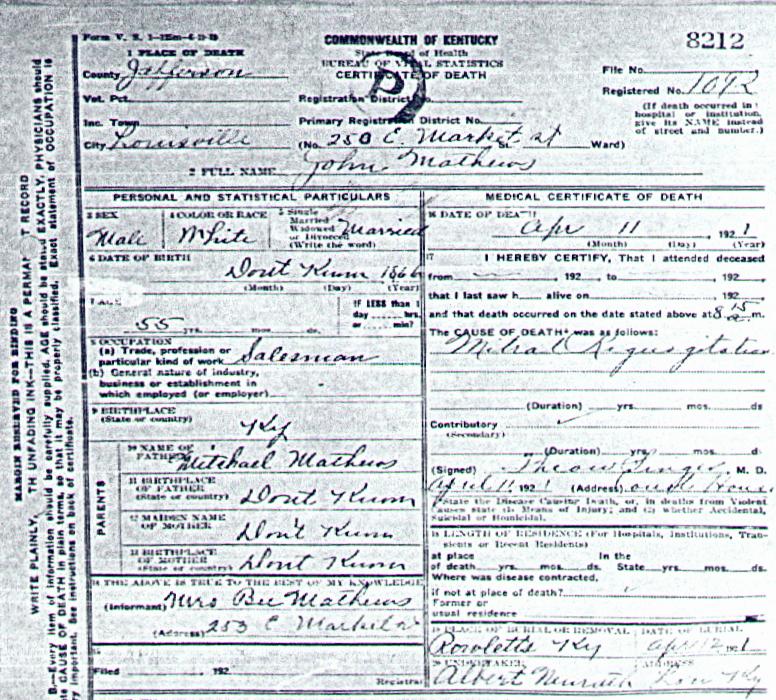 Form V. S. 1-
COMMONWEALTH OF KENTUCKY
8212
1 PLACE OF DEATH
State Board of Health
BUREAU OF VITAL STATISTICS
County Jefferson
CERTIFICATE OF DEATH
File No.
Vot. Pct.
Registration District
Registered No. 1092
Inc. Town
Primary Registration District No.
(If death occurred in hospital or institution, give its NAME instead of street and number.)
City Louisville
(No. 250 E. Market St Ward)
2 FULL NAME John Mathews
PERSONAL AND STATISTICAL PARTICULARS
3 SEX Male
4 COLOR OR RACE White
5 Single Married Widowed or Divorced (Write the word) Married
6 DATE OF BIRTH
Dont Know 1866
(Month) (Day) (Year)
7 AGE
55 yrs. mos. ds.
If LESS than 1 day hrs. or min?
8 OCCUPATION
(a) Trade, profession or particular kind of work Salesman
(b) General nature of industry, business or establishment in which employed (or employer)
9 BIRTHPLACE
(State or country)
Ky
PARENTS
10 NAME OF FATHER Mitchael Mathews
11 BIRTHPLACE OF FATHER
(State or country) Dont Know
12 MAIDEN NAME OF MOTHER Don't Know
13 BIRTHPLACE OF MOTHER
(State or country) Dont Know
14 THE ABOVE IS TRUE TO THE BEST OF MY KNOWLEDGE
(Informant) Mrs Bee Mathews
(Address) 253 E Market St
15
Filed , 192
Registrar
MEDICAL CERTIFICATE OF DEATH
16 DATE OF DEATH
Apr 11 , 1921
(Month) (Day) (Year)
17 I HEREBY CERTIFY, That I attended deceased
from , 192 to , 192
that I last saw h alive on , 192
and that death occurred on the date stated above at 8 15 a m.
The CAUSE OF DEATH* was as follows:
Mitral Regurgitation
(Duration) yrs. mos. ds
Contributory
(Secondary)
(Duration) yrs. mos. d
(Signed) M. D.
April 11 1921 (Address)
*State the Disease Causing Death, or, in deaths from Violent
Causes state (1) Means of Injury; and (2) whether Accidental,
Suicidal or Homicidal.
18 LENGTH OF RESIDENCE (For Hospitals, Institutions, Tran-
sients or Recent Residents)
at place In the
of death yrs. mos. ds. State yrs. mos. ds.
Where was disease contracted,
if not at place of death?
Former or
usual residence
19 PLACE OF BURIAL OR REMOVAL
DATE OF BURIAL
Rowletts Ky Apr 12 1921
20 UNDERTAKER
ADDRESS
Albert Lou Ky
MARGIN RESERVED FOR BINDING
WRITE PLAINLY, TH UNFADING INK—THIS IS A PERMA T RECORD
B.—Every item of information should be carefully supplied. AGE should be stated EXACTLY, PHYSICIANS should
e CAUSE OF DEATH in plain terms, so that it may be properly classified. Exact statement of OCCUPATION is
y important. See instructions on back of certificate.